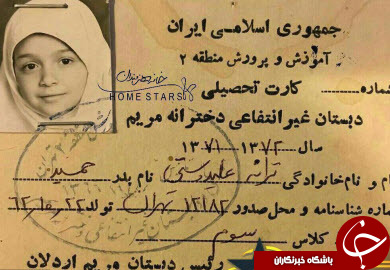 جمهوری اسلامی ایران
آموزش و پرورش منطقه ۲
شماره کارت تحصیلی
HOME STARS
دبستان غیر انتفاعی دخترانه مریم
سال ۱۳۷۲-۱۳۷۱
نام و نام خانوادگی ترانه علیدوستی نام پدر حمید
شماره شناسنامه و محل صدور ۱۲۱۸۲ تهران تولد ۶۲
کلاس سوم
رئیس دبستان مریم اردلان
باشگاه خبرنگاران